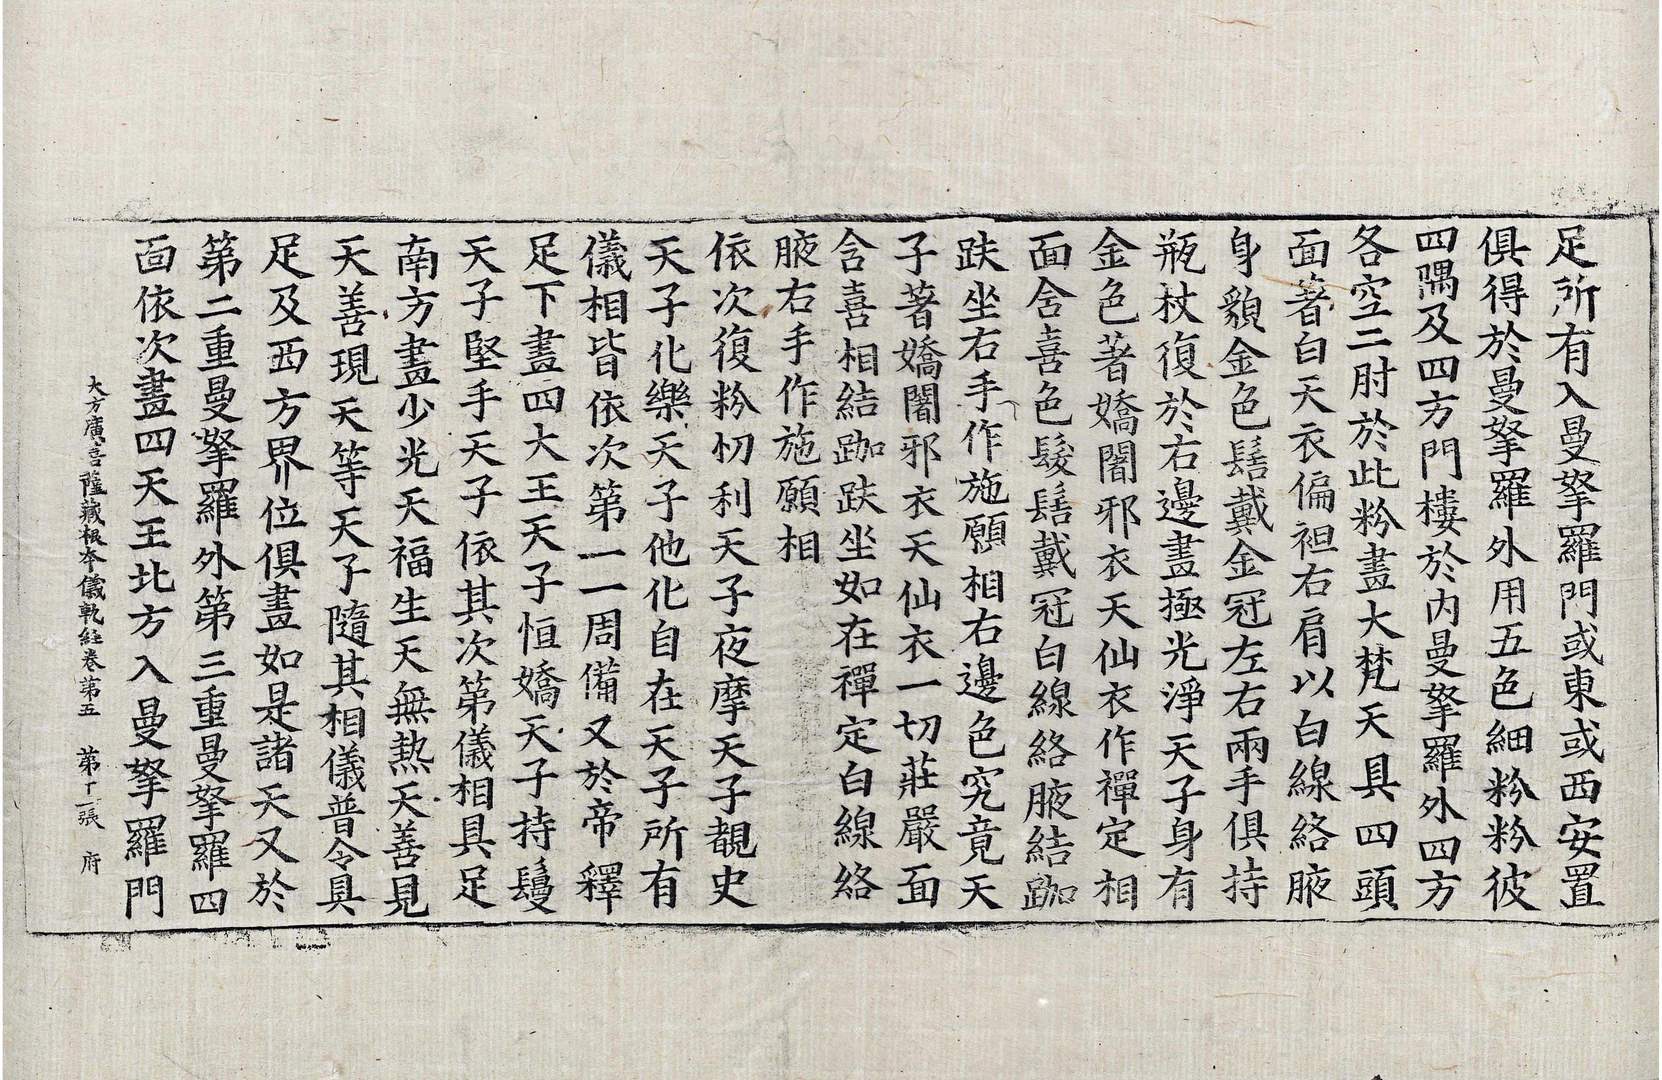 足所有入曼拏羅門或東或西安置
俱得於曼拏羅外用五色細粉粉彼
四隅及四方門樓於内曼拏羅外四方
各空二肘於此粉畫大梵天具四頭
面著白天衣偏袒右肩以白線絡腋
身貌金色髻戴金冠左右兩手俱持
瓶杖復於右邊畫極光淨天子身有
金色著嬌闍邪衣天仙衣作禪定相
面含喜色髮髻戴冠白線絡腋結跏
趺坐右手作施願相右邊色究竟天
子著嬌闍邪衣天仙衣一切莊嚴面
含喜相結跏趺坐如在禪定白線絡
腋右手作施願相
依次復粉忉利天子夜摩天子覩史
天子化樂天子他化自在天子所有
儀相皆依次第一一周備又於帝釋
足下畫四大王天子恒嬌天子持鬘
天子堅手天子依其次第儀相具足
南方畫少光天福生天無熱天善見
天善現天等天子隨其相儀普令具
足及西方界位俱畫如是諸天又於
第二重曼拏羅外第三重曼拏羅四
面依次畫四天王北方入曼拏羅門
大方廣菩薩藏根本儀軌經卷第五 第十一張 府